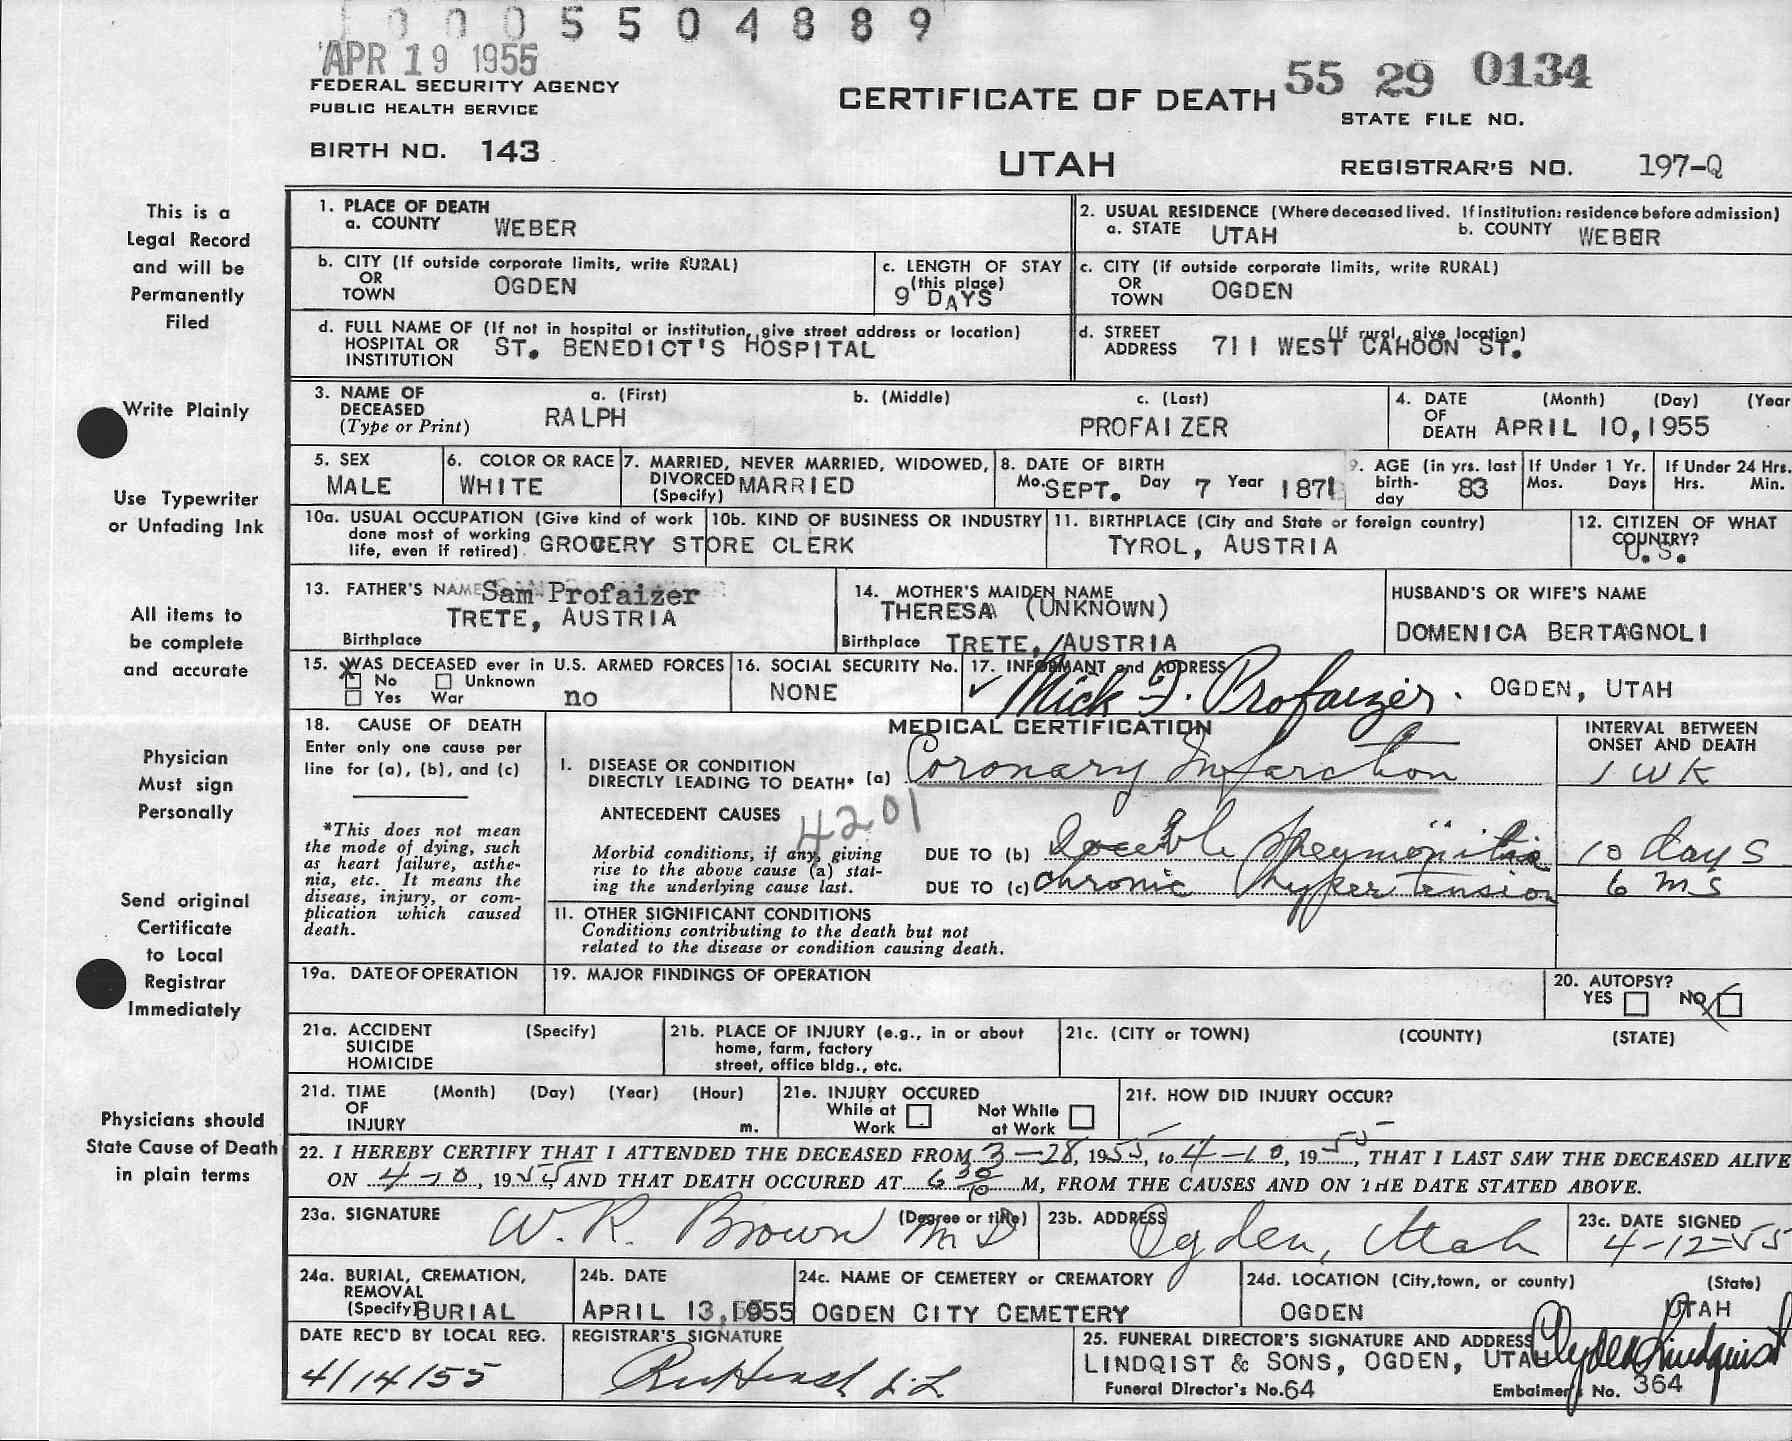 0005504889
APR 19 1955
FEDERAL SECURITY AGENCY
PUBLIC HEALTH SERVICE
BIRTH NO. 143
CERTIFICATE OF DEATH
UTAH
55 29 0134
STATE FILE NO.
REGISTRAR'S NO. 197-Q
This is a
Legal Record
and will be
Permanently
Filed
Write Plainly
Use Typewriter
or Unfading Ink
All items to
be complete
and accurate
Physician
Must sign
Personally
Send original
Certificate
to Local
Registrar
Immediately
Physicians should
State Cause of Death
in plain terms
1. PLACE OF DEATH
a. COUNTY WEBER
2. USUAL RESIDENCE (Where deceased lived. If institution: residence before admission)
a. STATE UTAH b. COUNTY WEBER
b. CITY (If outside corporate limits, write RURAL)
OR
TOWN OGDEN
c. LENGTH OF STAY
(this place)
9 DAYS
c. CITY (if outside corporate limits, write RURAL)
OR
TOWN OGDEN
d. FULL NAME OF (If not in hospital or institution, give street address or location)
HOSPITAL OR
INSTITUTION ST. BENEDICT'S HOSPITAL
d. STREET (If rural, give location)
ADDRESS 711 WEST CAHOON ST.
3. NAME OF
DECEASED
(Type or Print)
a. (First) b. (Middle) c. (Last)
RALPH PROFAIZER
4. DATE (Month) (Day) (Year
OF
DEATH APRIL 10,1955
5. SEX
MALE
6. COLOR OR RACE
WHITE
7. MARRIED, NEVER MARRIED, WIDOWED,
DIVORCED
(Specify) MARRIED
8. DATE OF BIRTH
Mo. SEPT. Day 7 Year 1871
9. AGE (in yrs. last
birth-
day 83
If Under 1 Yr.
Mos. Days
If Under 24 Hrs.
Hrs. Min.
10a. USUAL OCCUPATION (Give kind of work
done most of working
life, even if retired).
10b. KIND OF BUSINESS OR INDUSTRY
GROCERY STORE CLERK
11. BIRTHPLACE (City and State or foreign country)
TYROL, AUSTRIA
12. CITIZEN OF WHAT
COUNTRY?
U.S.
13. FATHER'S NAME Sam Profaizer
TRETE, AUSTRIA
Birthplace
14. MOTHER'S MAIDEN NAME
THERESA (UNKNOWN)
Birthplace TRETE, AUSTRIA
HUSBAND'S OR WIFE'S NAME
DOMENICA BERTAGNOLI
15. WAS DECEASED ever in U.S. ARMED FORCES
X No Unknown
Yes War no
16. SOCIAL SECURITY No.
NONE
17. INFORMANT and ADDRESS
Nick J. Profaizer. OGDEN, UTAH
18. CAUSE OF DEATH
Enter only one cause per
line for (a), (b), and (c)
*This does not mean
the mode of dying, such
as heart failure, asthe-
nia, etc. It means the
disease, injury, or com-
plication which caused
death.
MEDICAL CERTIFICATION
INTERVAL BETWEEN
ONSET AND DEATH
I. DISEASE OR CONDITION
DIRECTLY LEADING TO DEATH* (a) Coronary Infarction 1 WK
ANTECEDENT CAUSES 4201
Morbid conditions, if any, giving
rise to the above cause (a) stat-
ing the underlying cause last.
DUE TO (b) 10 days
DUE TO (c) chronic hypertension 6 ms
II. OTHER SIGNIFICANT CONDITIONS
Conditions contributing to the death but not
related to the disease or condition causing death.
19a. DATE OF OPERATION
19. MAJOR FINDINGS OF OPERATION
20. AUTOPSY?
YES NO X
21a. ACCIDENT (Specify)
SUICIDE
HOMICIDE
21b. PLACE OF INJURY (e.g., in or about
home, farm, factory
street, office bldg., etc.
21c. (CITY or TOWN) (COUNTY) (STATE)
21d. TIME (Month) (Day) (Year) (Hour)
OF
INJURY m.
21e. INJURY OCCURED
While at Not While
Work at Work
21f. HOW DID INJURY OCCUR?
22. I HEREBY CERTIFY THAT I ATTENDED THE DECEASED FROM 3-28, 1955, to 4-10, 1955, THAT I LAST SAW THE DECEASED ALIVE
ON 4-10, 1955, AND THAT DEATH OCCURED AT 6 30 p M, FROM THE CAUSES AND ON THE DATE STATED ABOVE.
23a. SIGNATURE (Degree or title)
W. R. Brown MD
23b. ADDRESS
Ogden, Utah
23c. DATE SIGNED
4-12-55
24a. BURIAL, CREMATION,
REMOVAL
(Specify) BURIAL
24b. DATE
APRIL 13,1955
24c. NAME OF CEMETERY or CREMATORY
OGDEN CITY CEMETERY
24d. LOCATION (City,town, or county) (State)
OGDEN UTAH
DATE REC'D BY LOCAL REG.
4/14/55
REGISTRAR'S SIGNATURE
25. FUNERAL DIRECTOR'S SIGNATURE AND ADDRESS
LINDQIST & SONS, OGDEN, UTAH Clyde Lindquist
Funeral Director's No. 64 Embalmer's No. 364